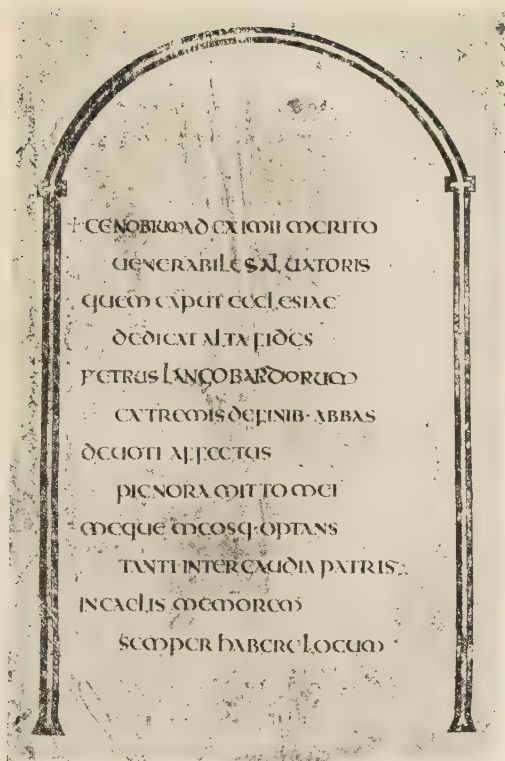 + CENOBIUM AD EXIMII MERITO
UENERABILE SALUATORIS
QUEM CAPUT ECCLESIAE
DEDICAT ALTA FIDES
PETRUS LANGOBARDORUM
EXTREMIS DEFINIB· ABBAS
DEUOTI AFFECTUS
PIGNORA MITTO MEI
MEQUE MEOSQ· OPTANS
TANTI INTER GAUDIA PATRIS
IN CAELIS MEMOREM
SEMPER HABERE LOCUM